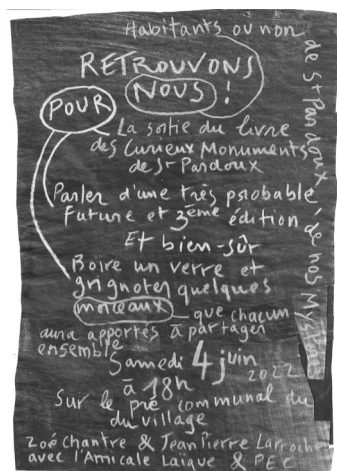 Habitants ou non
de St Pardoux, de nos
RETROUVONS
NOUS !
POUR
La sortie du livre
des Curieux Monuments
de St Pardoux
Parler d'une très probable
future et 3ème édition
Et bien-sûr
Boire un verre et
grignoter quelques
morceaux que chacun
aura apportés à partager
ensemble
Samedi 4 juin
2022
à 18h
Sur le pré communal du
du village
Zoé Chantre & Jean Pierre Larroche
avec l'Amicale Laïque & PE